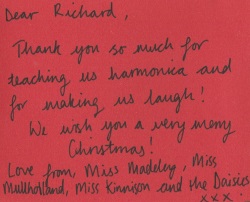 Dear Richard,
Thank you so much for
teaching us harmonica and
for making us laugh!
We wish you a very merry
Christmas!
Love from, Miss Madeley, Miss
Mullholland, Miss Kinnison and the Daisies
xxx